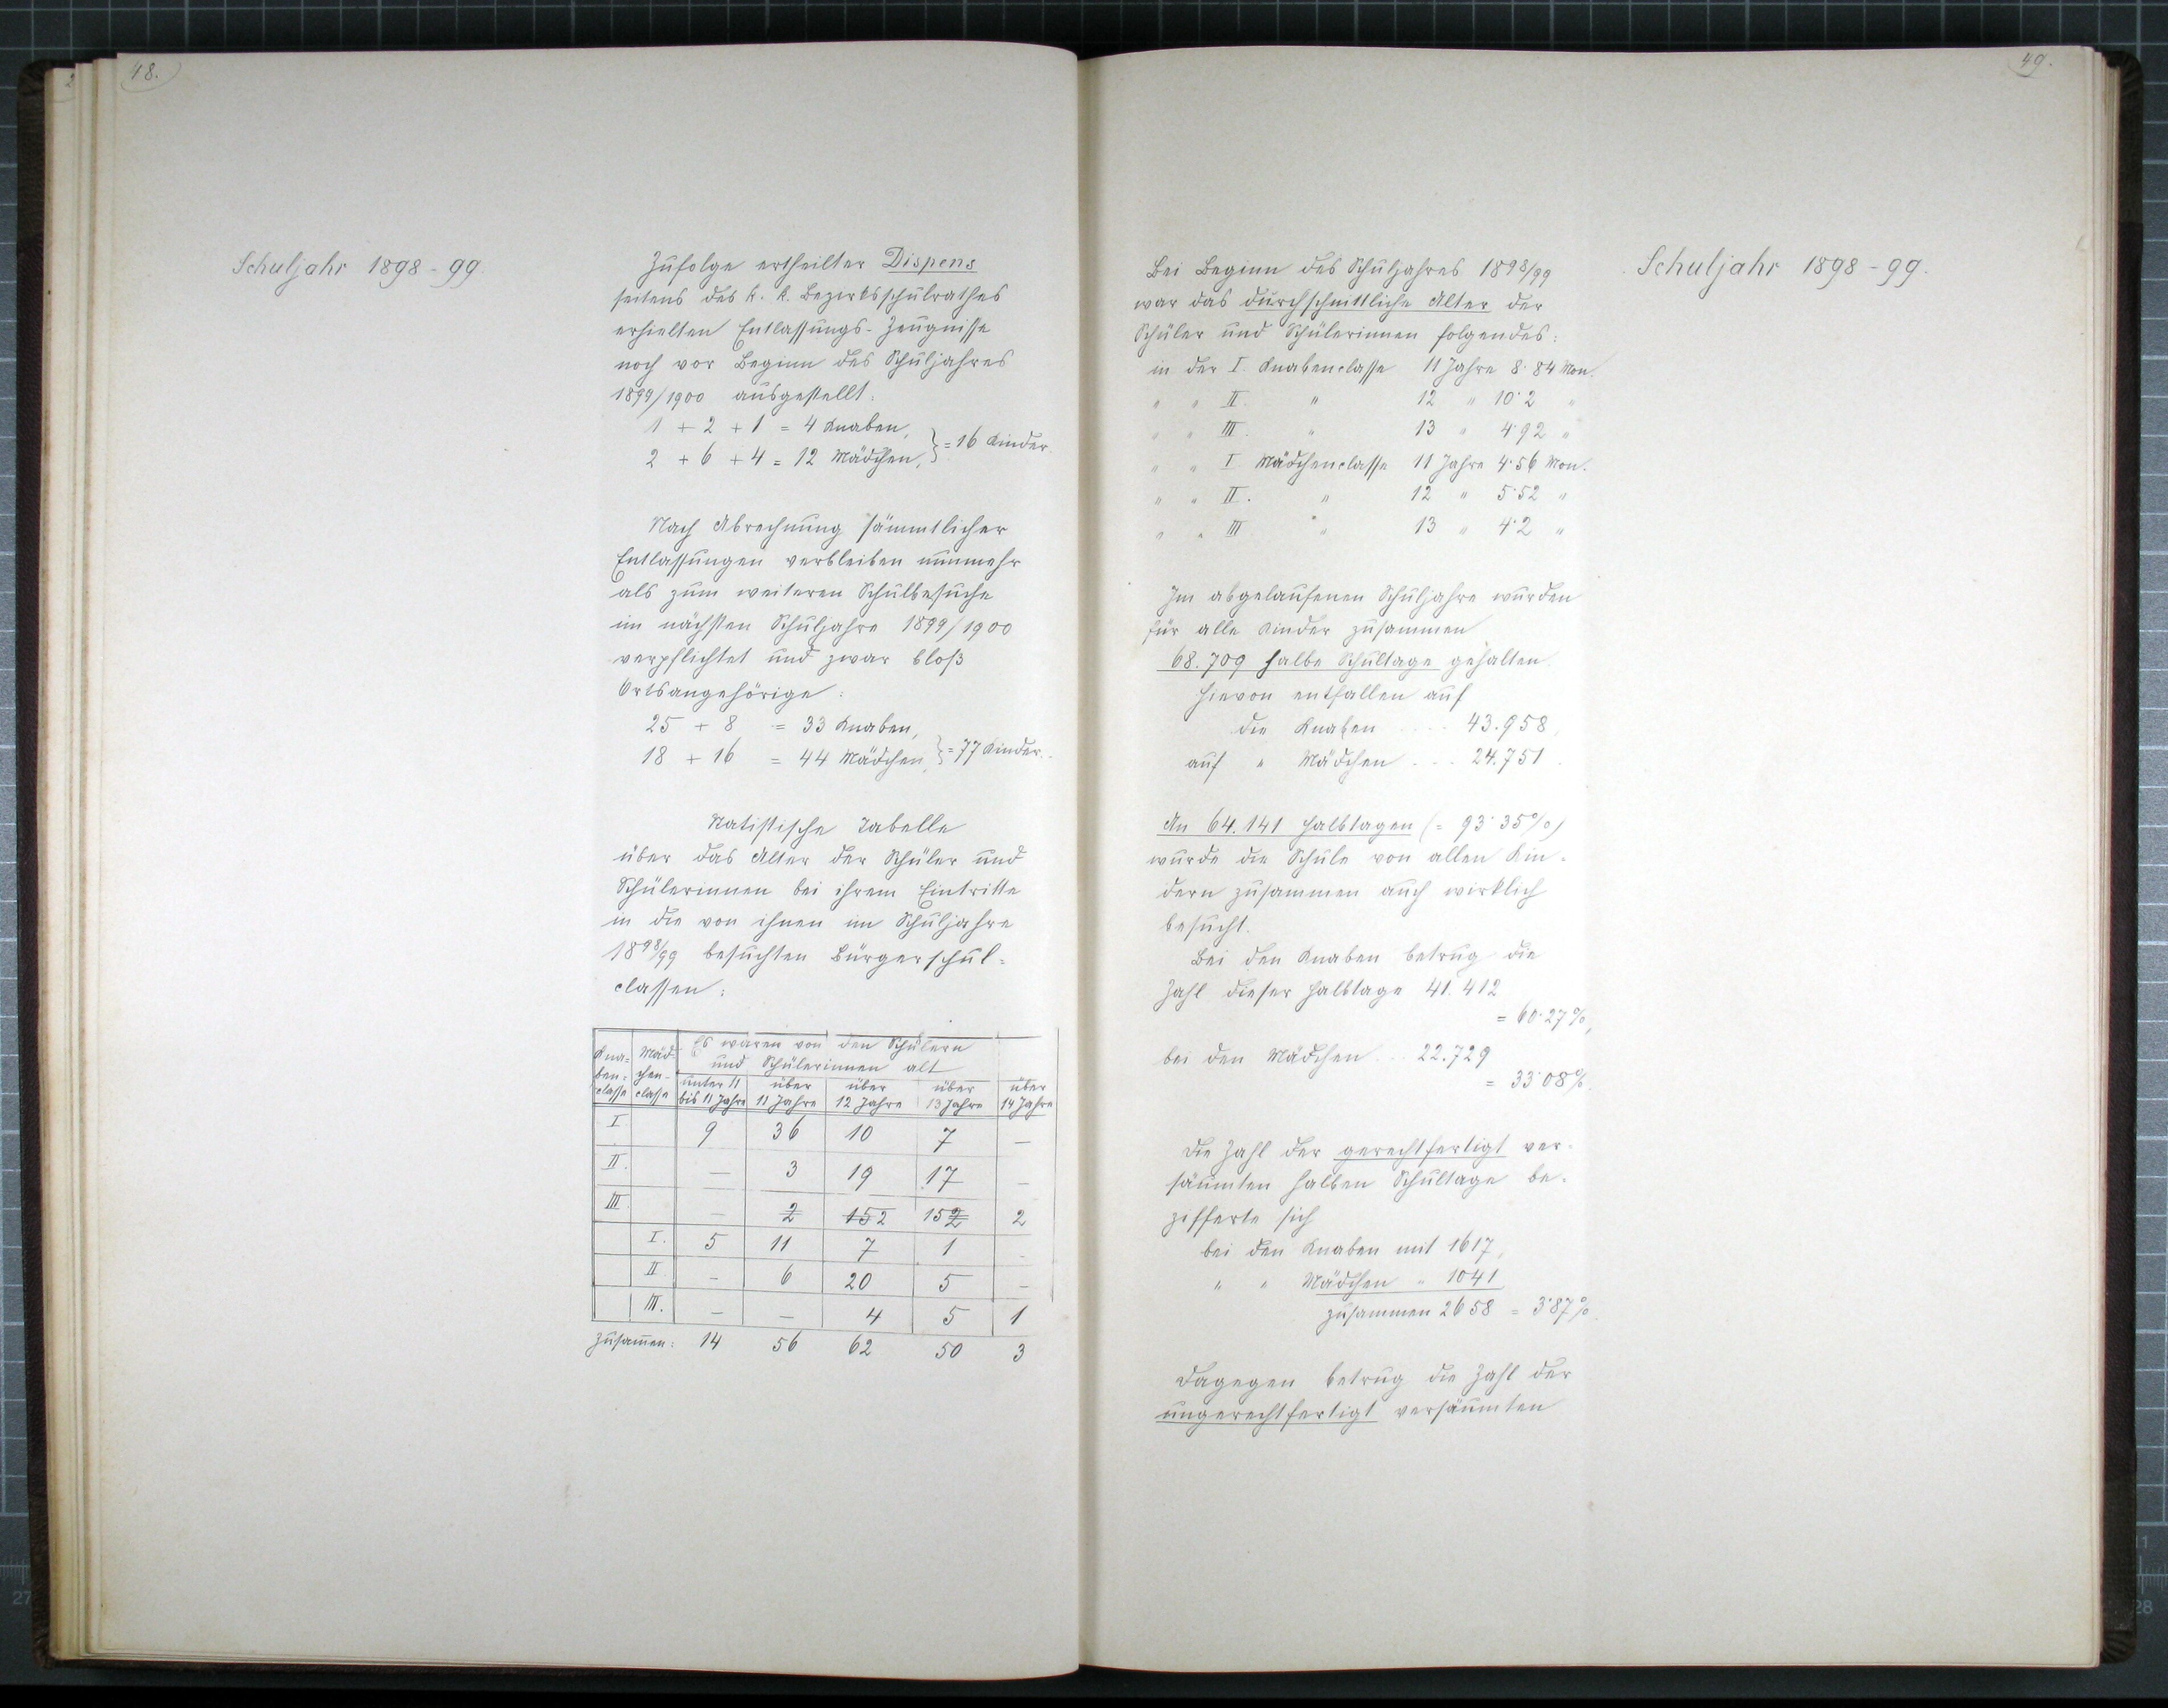 48.
Schuljahr 1898-99.
Zufolge ertheilter Dispens
seitens des k. k. Bezirksschulrathes
erhielten Entlassungs-Zeugnisse
noch vor Beginn des Schuljahres
1899/1900 ausgestellt:
1 + 2 + 1 = 4 Knaben,
2 + 6 + 4 = 12 Mädchen, } = 16 Kinder.
Nach Abrechnung sämmtlicher
Entlassungen verbleiben nunmehr
als zum weiteren Schulbesuche
im nächsten Schuljahre 1899/1900
verpflichtet und zwar bloß
Ortsangehörige:
25 + 8 = 33 Knaben,
18 + 16 = 44 Mädchen, } = 77 Kinder.
Statistische Tabelle
über das Alter der Schüler und
Schülerinnen bei ihrem Eintritte
in die von ihnen im Schuljahre
1898/99 besuchten Bürgerschul-
classen:
Kna-ben-classe Mäd-chen-classe Es waren von den Schülern
und Schülerinnen alt
unter 11 bis 11 Jahre über 11 Jahre über 12 Jahre über 13 Jahre über 14 Jahre
I 9 36 10 7 —
II. — 3 19 17 —
III. — 2 152 152 2
I. 5 11 7 1 -
II — 6 20 5 —
III. — — 4 5 1
Zusammen: 14 56 62 50 3
49.
Schuljahr 1898-99.
Bei Beginn des Schuljahres 1898/99
war das durchschnittliche Alter der
Schüler und Schülerinnen folgendes:
in der I. Knabenclasse 11 Jahre 8·84 Mon.
" " II. " 12 " 10·2 "
" " III. " 13 " 4·92 "
" " I Mädchenclasse 11 Jahre 4·56 Mon.
" " II. " 12 " 5·52 "
" " III " 13 " 4·2 "
Im abgelaufenen Schuljahre wurden
für alle Kinder zusammen
68.709 halbe Schultage gehalten.
Hievon entfallen auf
die Knaben .... 43.958,
auf " Mädchen ... 24.751.
An 64.141 Halbtagen (= 93·35%)
wurde die Schule von allen Kin-
dern zusammen auch wirklich
besucht.
Bei den Knaben betrug die
Zahl dieser Halbtage 41.412
= 60·27%,
bei den Mädchen ... 22.729
= 33·08%.
Die Zahl der gerechtfertigt ver-
säumten halben Schultage be-
zifferte sich
bei den Knaben mit 1617,
" " Mädchen " 1041
zusammen 2658 = 3·87%.
Dagegen betrug die Zahl der
ungerechtfertigt versäumten